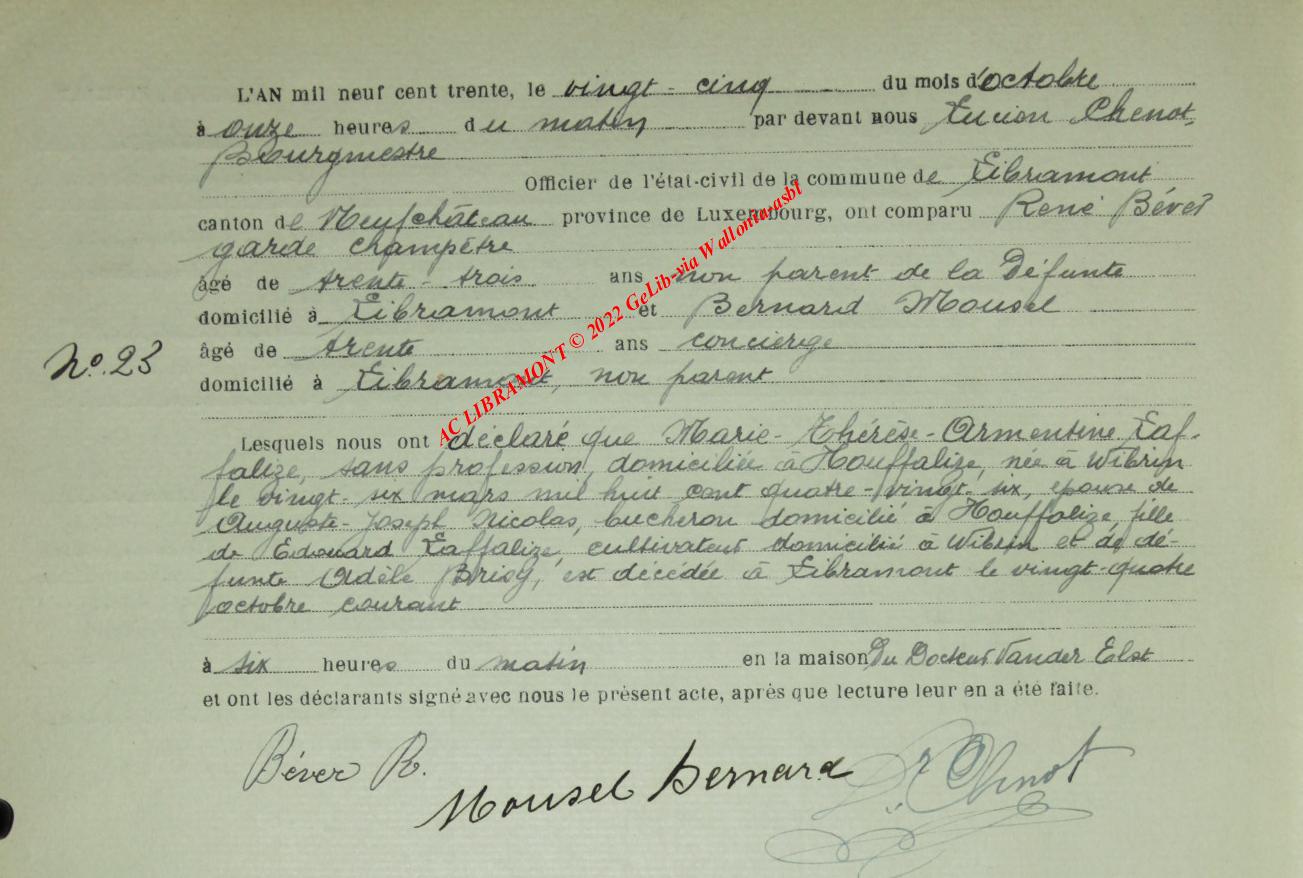 L'AN mil neuf cent trente, le vingt-cinq du mois d'octobre
à onze heures du matin par devant nous Lucien Chenot,
Bourgmestre
Officier de l'état-civil de la commune de Libramont
canton de Neufchâteau province de Luxembourg, ont comparu René Béver
garde champêtre
âgé de trente-trois ans non parent de la Défunte
domicilié à Libramont et Bernard Mousel
âgé de trente ans concierge
domicilié à Libramont, non parent
N° 23
Lesquels nous ont déclaré que Marie-Thérèse-Armentine Laf-
falize, sans profession, domiciliée à Houffalize, née à Wibrin
le vingt-six mars mil huit cent quatre-vingt-six, épouse de
Auguste-Joseph Nicolas, bucheron domicilié à Houffalize, fille
de Edouard Laffalize, cultivateur domicilié à Wibrin et de dé-
funte Adèle Briol, est décédée à Libramont le vingt-quatre
octobre courant
à six heures du matin en la maison Du Docteur Vander Elst
et ont les déclarants signé avec nous le présent acte, après que lecture leur en a été faite.
Béver R. Mousel Bernard Chenot
AC LIBRAMONT © 2022 GeLib-via Wallonia-asbl